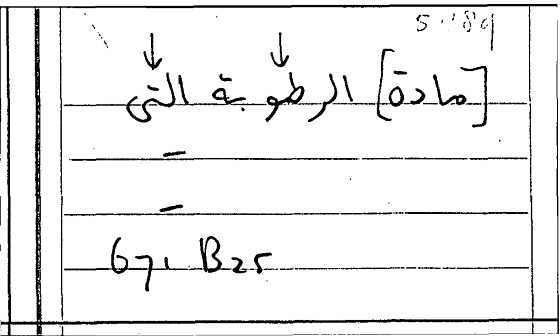 [مادة] الرطوبة التى
–
–
671 B25